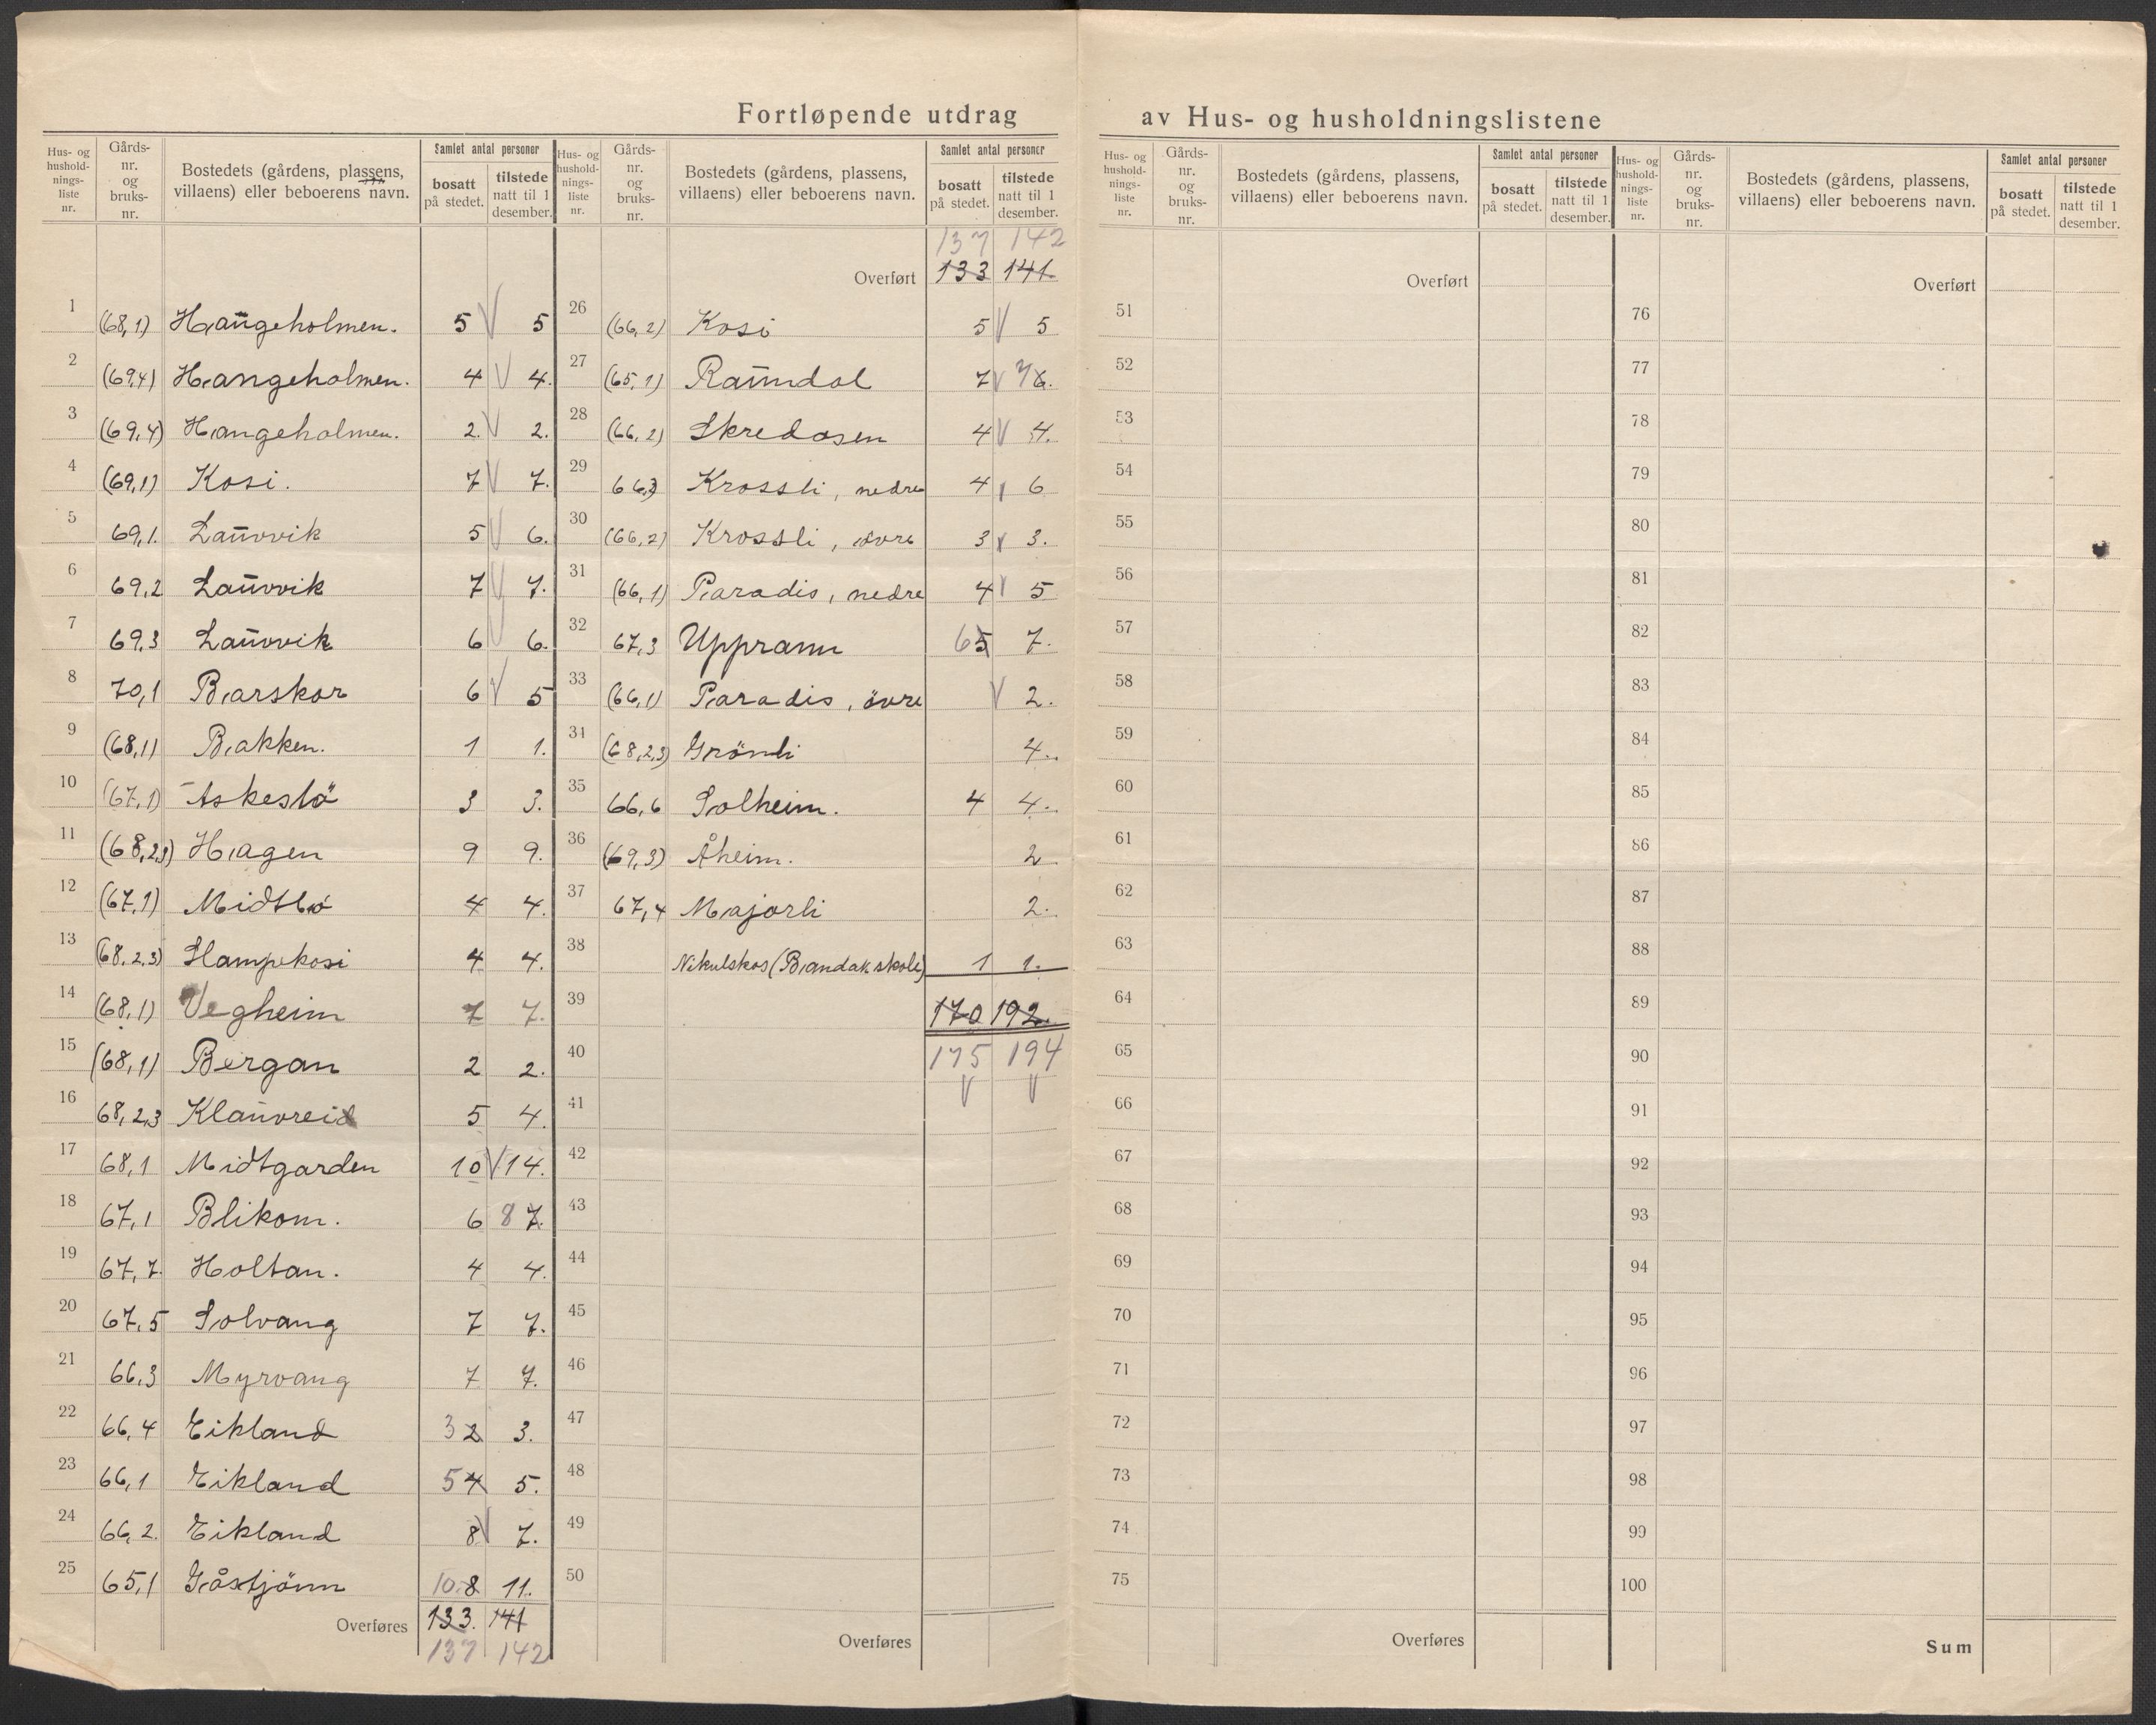 Fortløpende utdrag av Hus- og husholdningslistene
Hus- og hushold- nings- liste nr. | Gårds- nr. og bruks- nr. | Bostedets (gårdens, plassens, villaens) eller beboerens navn. | Samlet antal personer | bosatt på stedet. | tilstede natt til 1 desember.
1 (68,1) Haugeholmen. 5 V 5
2 (69,4) Haugeholmen. 4 V 4.
3 (69,4) Haugeholmen. 2. V 2.
4 (69,1) Kosi. 7 V 7.
5 69,1. Lauvvik 5 V 6.
6 69,2 Lauvvik 7 V 7.
7 69,3 Lauvvik 6 V 6.
8 70,1 Barskor 6 V 5
9 (68,1) Bakken. 1 1.
10 (67,1) Askeslö 3 3.
11 (68,2,3) Hagen 9 9.
12 (67,1) Midtbö 4 4.
13 (68,2,3) Hampekosi 4 4.
14 (68,1) Vegheim 7 7.
15 (68,1) Bergan 2 2.
16 68,2,3 Klauvreid 5 4.
17 68,1 Midtgarden 10 V 14.
18 67,1 Blikom. 6 8 7.
19 67,7. Holtan. 4 4.
20 67,5 Solvang 7 7.
21 66,3 Myrvang 7 7.
22 66,4 Eikland 3 2 3.
23 66,1 Eikland 5 4 5.
24 66,2. Eikland 8 V 7.
25 65,1 Gåstjönn 10. 8 11.
Overføres 133. 141
137 142
Hus- og hushold- nings- liste nr. | Gårds- nr. og bruks- nr. | Bostedets (gårdens, plassens, villaens) eller beboerens navn. | Samlet antal personer | bosatt på stedet. | tilstede natt til 1 desember.
137 142
Overført 133 141.
26 (66,2) Kosi 5 V 5
27 (65,1) Raundal 7 V 7 6.
28 (66,2) Skredåsen 4 V 4.
29 66,2 Krossli, nedre 4 6
30 (66,2) Krossli, övre 3 3.
31 (66,1) Paradis, nedre 4 5
32 67,3 Upprann 6 5 7.
33 (66,1) Paradis, övre V 2.
34 (68,2,3) Grönli 4.
35 66,6 Solheim. 4 4.
36 (69,3) Åheim. 2
37 67,4 Majorli 2.
38 Nikulskos (Bandak skole) 1 1.
39 170 192.
40 175 194
41 V V
42
43
44
45
46
47
48
49
50
Overføres
Hus- og hushold- nings- liste nr. | Gårds- nr. og bruks- nr. | Bostedets (gårdens, plassens, villaens) eller beboerens navn. | Samlet antal personer | bosatt på stedet. | tilstede natt til 1 desember.
Overført
51
52
53
54
55
56
57
58
59
60
61
62
63
64
65
66
67
68
69
70
71
72
73
74
75
Overføres
Hus- og hushold- nings- liste nr. | Gårds- nr. og bruks- nr. | Bostedets (gårdens, plassens, villaens) eller beboerens navn. | Samlet antal personer | bosatt på stedet. | tilstede natt til 1 desember.
Overført
76
77
78
79
80
81
82
83
84
85
86
87
88
89
90
91
92
93
94
95
96
97
98
99
100
Sum